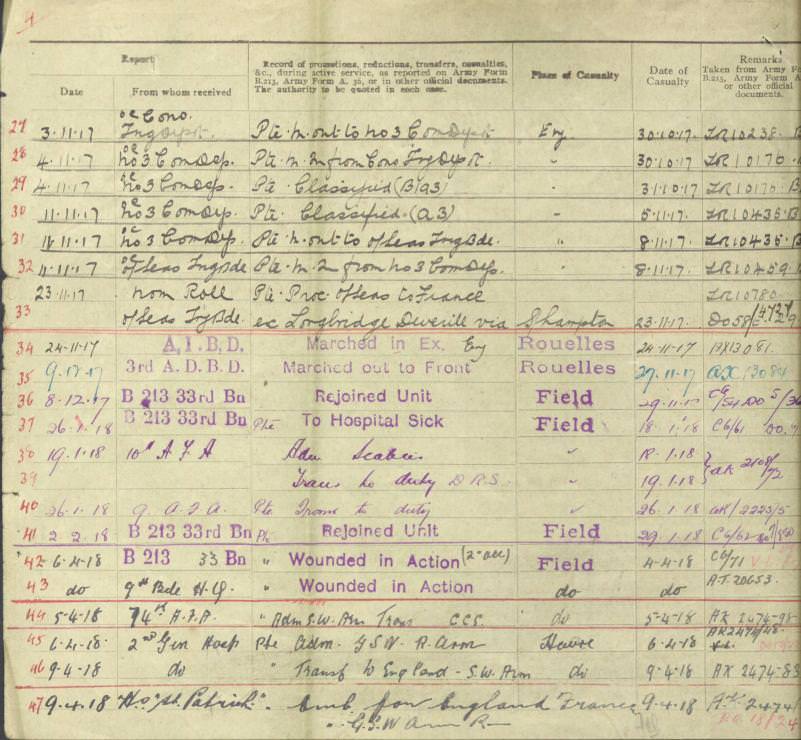 4
Report
Record of promotions, reductions, transfers, casualties, &c., during active service, as reported on Army Form B.213, Army Form A. 36, or in other official documents. The authority to be quoted in each case.
Place of Casualty
Date of Casualty
Remarks Taken from Army Fo B.213, Army Form A or other official documents.
Date From whom received
27 3.11.17 oc Cono. Trg Depot. Pte. M. out to No 3 Com Depot Eng 30.10.17. LR10238.
28 4.11.17 oc No 3 Com Dep. Pte. M. In from Cono Trg Depot. " 30.10.17 LR10170
29 4.11.17 oc No 3 Com Dep. Pte Classified (B1a3) " 31.10.17 LR10170 B
30 11.11.17 oc No 3 Com Dep. Pte. Classified. (a3) " 5.11.17. LR10435 B
31 11.11.17 oc No 3 Com Dep. Pte. M. out to O/Seas Trg Bde. " 8.11.17. LR10435. B
32 11.11.17 O/Seas Trg Bde Pte. M. In from No 3 Com Dep. " 8.11.17. LR10459
23.11.17 Nom Roll Pte. Proc. O/Seas to France LR10780
33 O/Seas Trg Bde. ex Longbridge Deverill via S'hampton 23.11.17. DO58
34 24.11.17 A.I.B.D. Marched in Ex. Eng Rouelles 24.11.17 13081.
35 3rd A.D.B.D. Marched out to Front Rouelles 27.11.17 AX 13084
36 8.12.17 B 213 33rd Bn Rejoined Unit Field 29.11.17
37 26.1.18 B 213 33rd Bn Pte To Hospital Sick Field 18.1.18 C6/61
38 19.1.18 10th A.F.A Adm Scabies "
39 Trans to duty D.R.S. " 19.1.18 AK 2108/72
40 26.1.18 9. A.F.A. Pte From to duty " 26.1.18 AK/2223/5
41 2 2.18 B 213 33rd Bn Pte Rejoined Unit Field 29.1.18 C6/62
42 6.4.18 B 213 33 Bn " Wounded in Action (2nd occ) Field 4.4.18 C6/71
43 do 9th Bde H.Q. " Wounded in Action do do A.T. 20653.
44 5.4.18 74th A.F.A. " Adm S.W. Arm Trans C.C.S. do 5.4.18 AK 2474-98
45 6.4.18 2nd Gen Hosp Pte Adm. G.S.W. R. Arm Havre 6.4.18 AK 2474/48.
46 9.4.18 do " Transf to England - S.W. Arm do 9.4.18 AK 2474-83
47 9.4.18 "H.S. St. Patrick". Emb for England France 9.4.18 2474/
" G.S.W Arm R